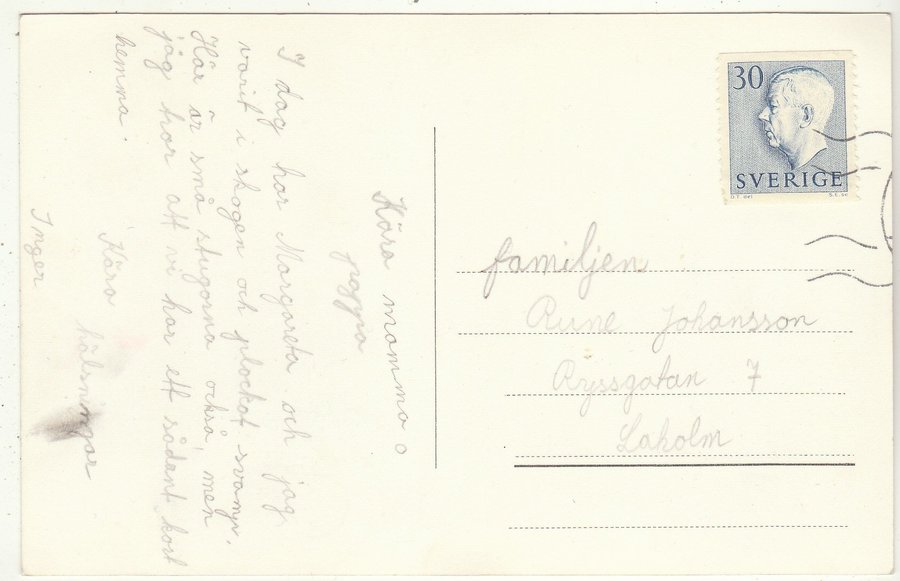 Kära mamma o
pappa
I dag har Margareta och jag
varit i skogen och plockat svamp.
Här är små stugorna också, men
jag tror att vi har ett sådant kort
hemma.
Kära hälsningar
Inger
30
SVERIGE
familjen
Rune Johansson
Ryssgatan 7
Laholm